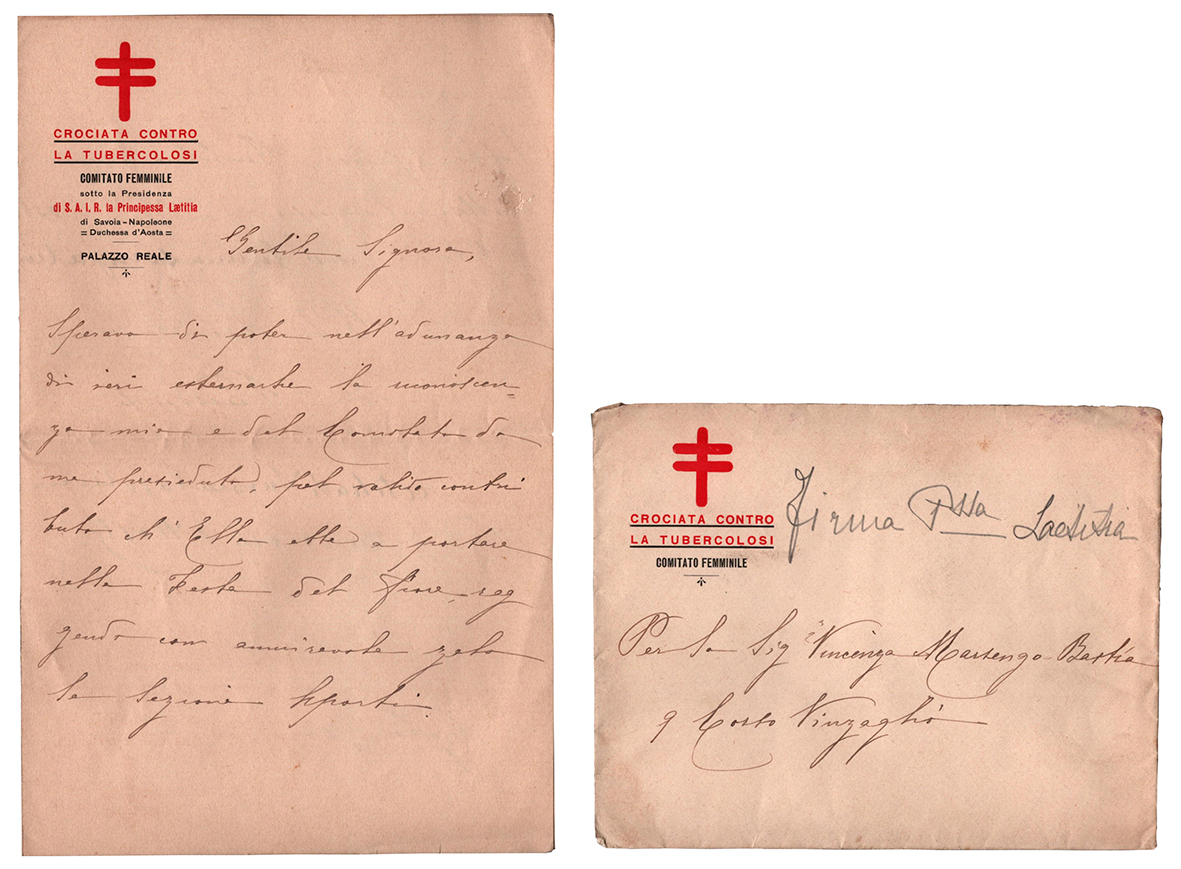 CROCIATA CONTRO
LA TUBERCOLOSI
COMITATO FEMMINILE
sotto la Presidenza
di S. A. I. R. la Principessa Lætitia
di Savoia - Napoleone
= Duchessa d'Aosta =
PALAZZO REALE
Gentile Signora,
Speravo di poter nell'adunanza
di ieri esternarle la riconoscen=
za mia e del Comitato da
me presieduto, pel valido contri
buto ch'Ella ebbe a portare
nella Festa del fiore, reg
gendo con ammirevole zelo
la sezione Sports.
CROCIATA CONTRO
LA TUBERCOLOSI
COMITATO FEMMINILE
Firma Pssa Laetitia
Per la Sig.ra Vincenza Marengo Bastia
9 Corso Vinzaglio